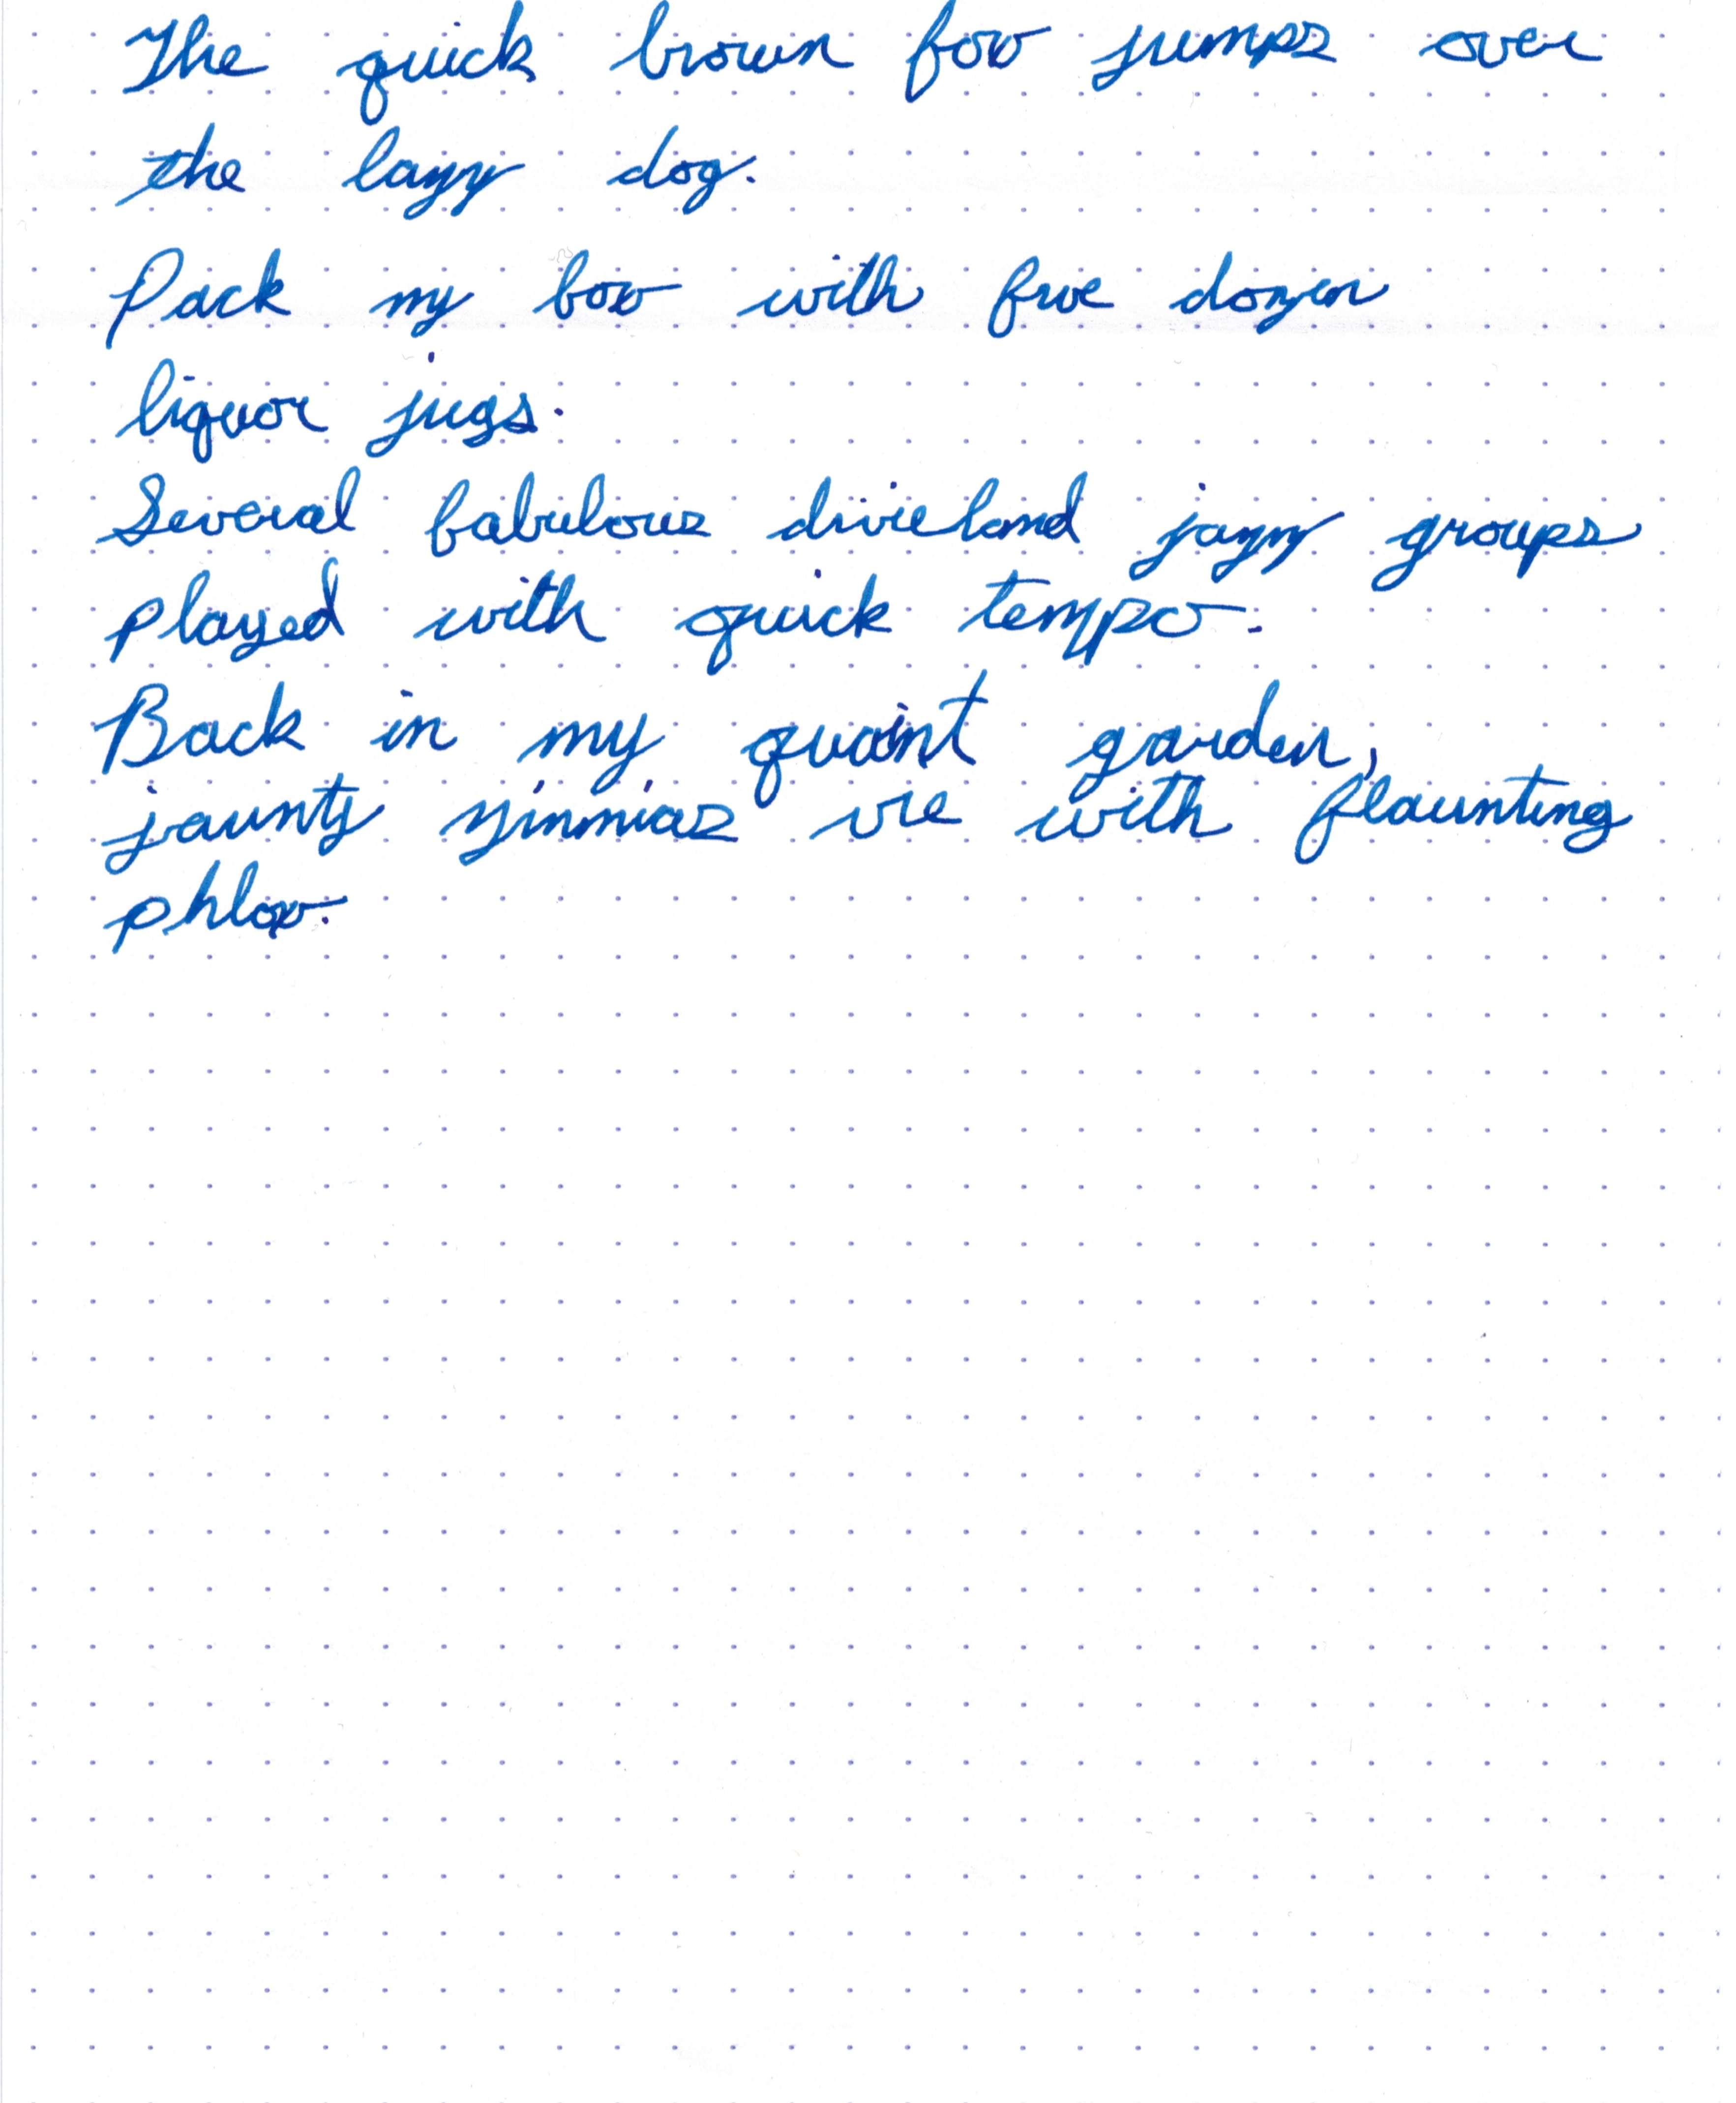 The quick brown fox jumps over
the lazy dog.
Pack my box with five dozen
liquor jugs.
Several fabulous dixieland jazz groups
played with quick tempo.
Back in my quaint garden,
jaunty zinnias vie with flaunting
phlox.